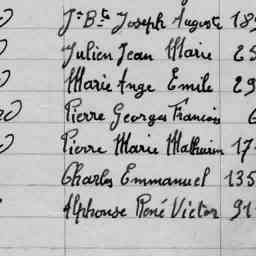 Jn Bte Joseph Auguste 18
Julien Jean Marie 25
Marie Ange Emile 29
Pierre Georges Francois 6
Pierre Marie Mathurin 17
Charles Emmanuel 135
Alphonse René Victor 91